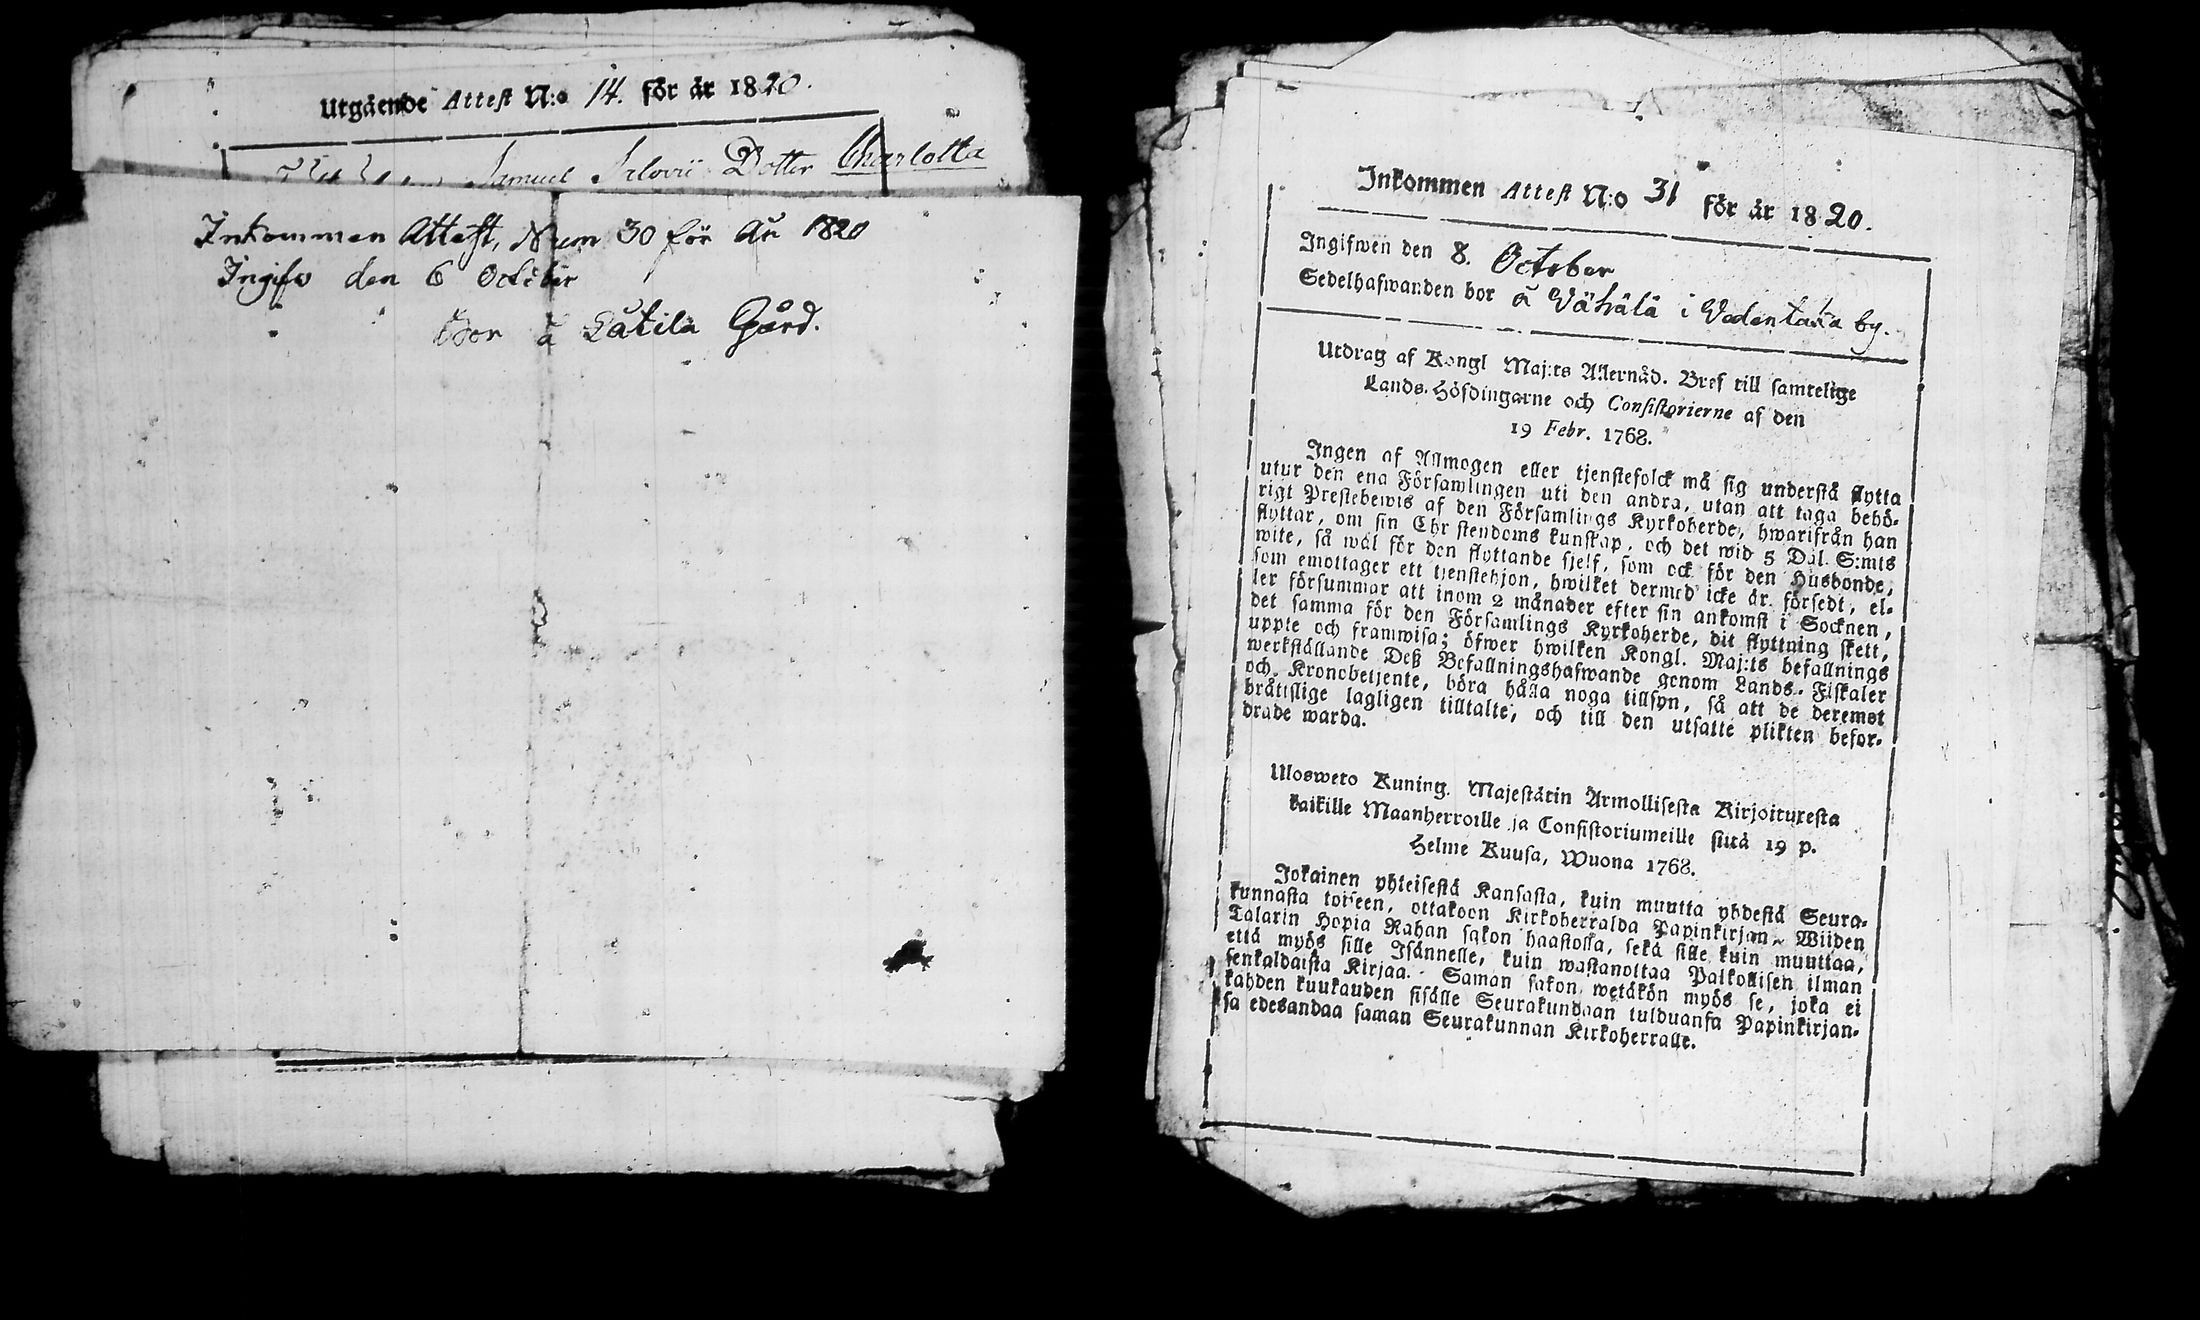 Utgående Attest N:o 14. för år 1820.
Samuel Dotter Charlotta
Inkommen Attest, Num 30 för År 1820
Ingifw den 6 October
bor å Låtila Gård.
Inkommen Attest N:o 31 för år 1820.
Ingifwen den 8. October
Sedelhafwanden bor å Vähälä i Vedentaka by.
Utdrag af Kongl Maj:ts Allernåd. Bref till samtelige
Lands-Höfdingarne och Consistorierne af den
19 Febr. 1768.
Ingen af Allmogen eller tjenstefolck må sig understå flytta
utur den ena Församlingen uti den andra, utan att taga behö-
rigt Prestebewis af den Församlings Kyrkoherde, hwarifrån han
flyttar, om sin Christendoms kunskap, och det wid 5 Dal. S:mts
wite, så wäl för den flyttande sjelf, som ock för den Husbonde,
som emottager ett tjenstehjon, hwilket dermed icke är försedt, el-
ler försummar att inom 2 månader efter sin ankomst i Socknen,
det samma för den Församlings Kyrkoherde, dit flyttning skett,
uppte och framwisa; öfwer hwilken Kongl. Maj:ts befallnings
werkställande Deß Befallningshafwande genom Lands-Fiskaler
och Kronobetjente, böra hålla noga tillsyn, så att de deremot
bråttslige lagligen tilltalte, och till den utsatte plikten befor-
drade warda.
Ulosweto Kuning. Majestätin Armollisesta Kirjoituxesta
kaikille Maanherroille ja Consistoriumeille siitä 19 p.
Helme Kuusa, Wuona 1768.
Jokainen yhteisestä Kansasta, kuin muutta yhdestä Seura-
kunnasta toiseen, ottakoon Kirkoherralda Papinkirjan, Wiiden
Talarin Hopia Rahan sakon haastolla, sekä sille kuin muuttaa,
että myös sille Isännelle, kuin wastanottaa Palkollisen ilman
senkaldaista Kirjaa. Saman sakon wetäkön myös se, joka ei
kahden kuukauden sisälle Seurakundaan tulduansa Papinkirjan-
sa edesandaa saman Seurakunnan Kirkoherralle.